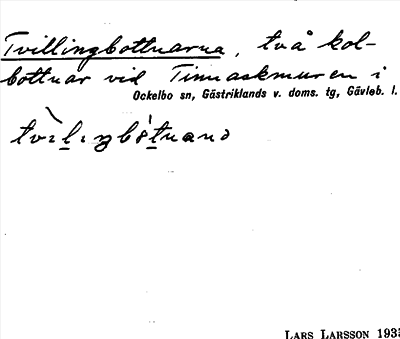 Tvillingbottnarna, två kol-
bottnar vid Timaskmuren i
Ockelbo sn, Gästriklands v. doms. tg, Gävleb. l.
LARS LARSSON 1933